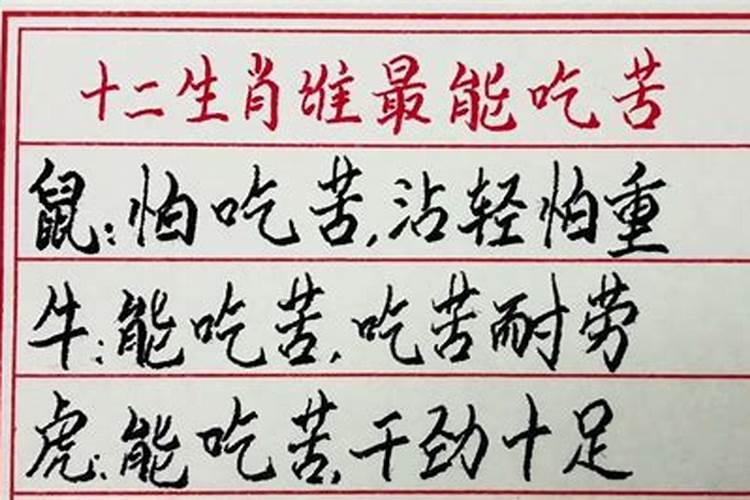 十二生肖谁最能吃苦
鼠:怕吃苦,沾轻怕重
牛:能吃苦,吃苦耐劳
虎:能吃苦,干劲十足